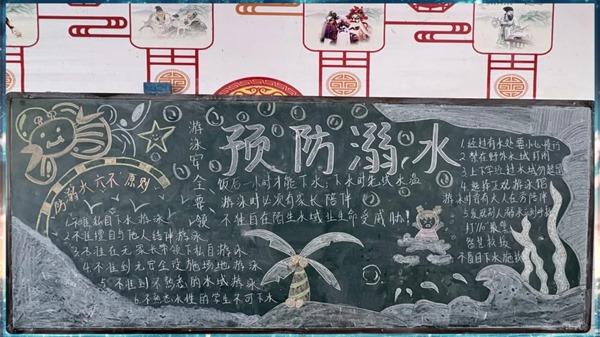 预防溺水
防溺水六不原则
1.不准私自下水游泳
2.不准擅自与他人结伴游泳
3.不准在无家长带领下私自游泳
4.不准到无安全设施场地游泳
5.不准到不熟悉的水域游泳
6.不熟悉水性的学生不可下水
游泳安全要领
饭后一小时才能下水,下水时先试水温
游泳时必须有家长陪伴
不准自在陌生水域让生命受威胁!
1.经过有水处要小心慢行
2.禁在野外水域
3.上下学经过水域勿
4.选择正规游泳馆
游泳时有大人在旁陪伴
5.发现有人溺水
打110
智慧救援
不盲目下水施救